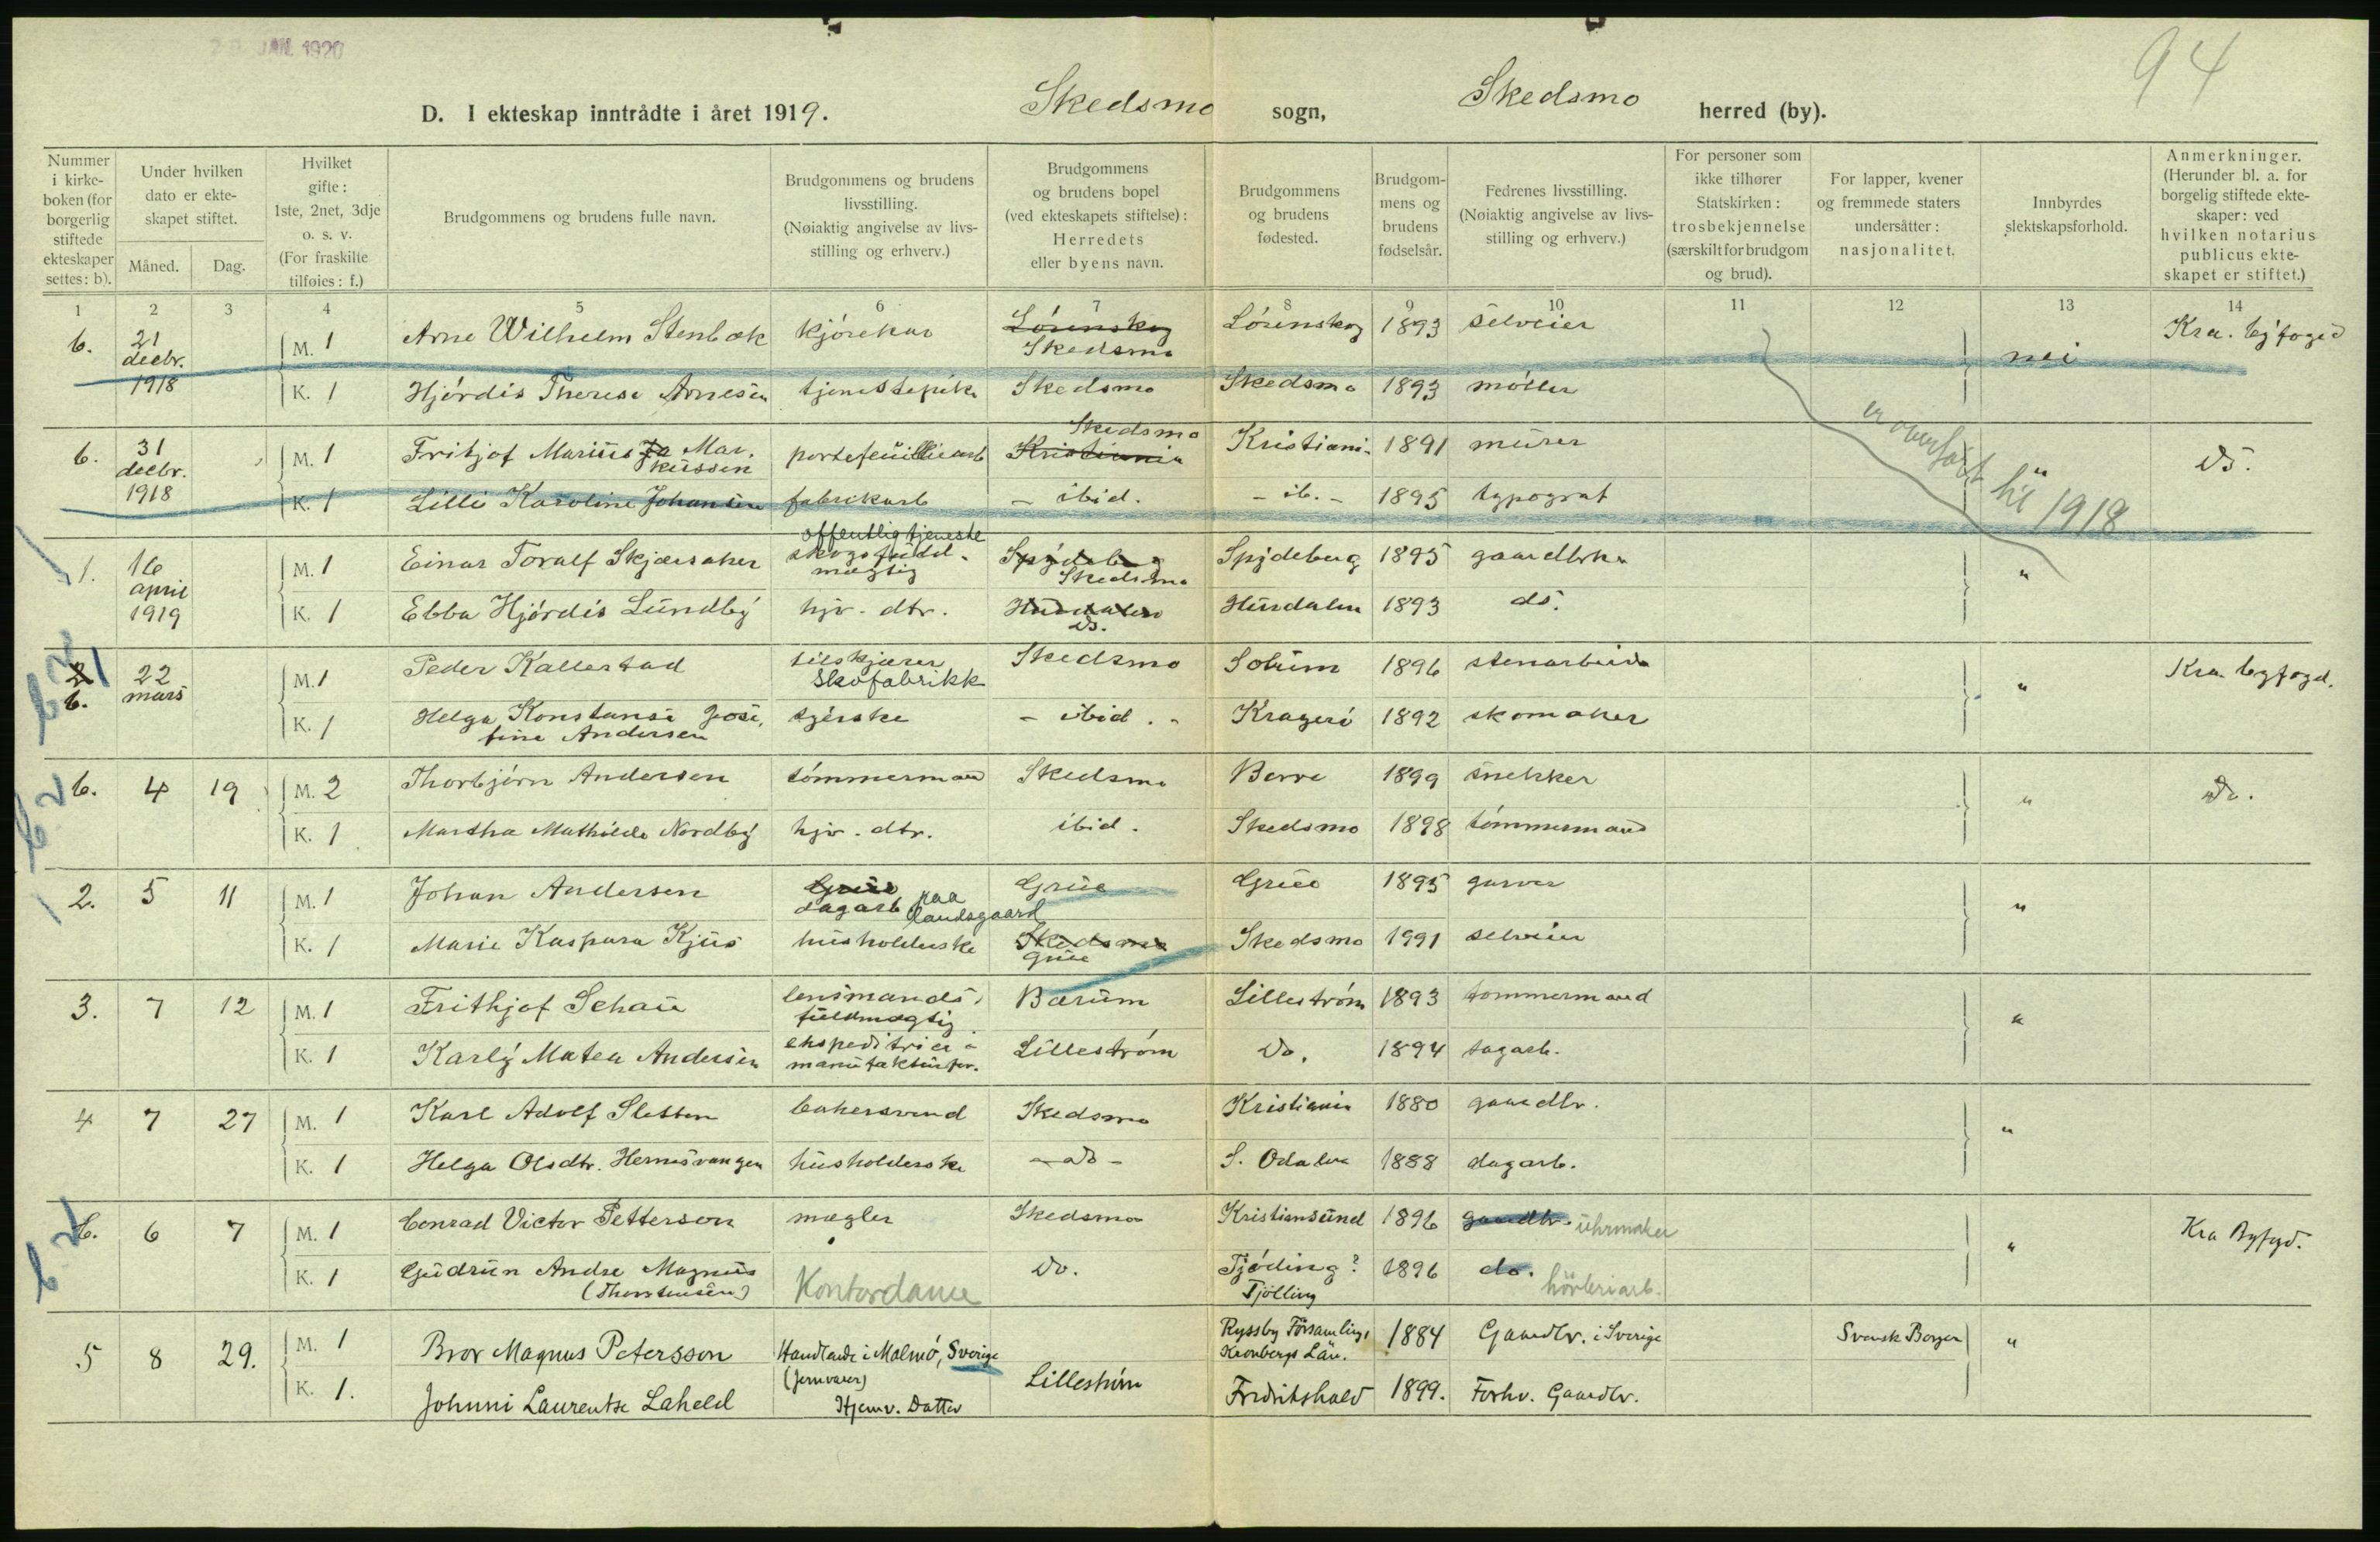 JAN. 1920
94
D. I ekteskap inntrådte i året 1919. Skedsmo sogn, Skedsmo herred (by).
Nummer i kirkeboken (for borgerlig stiftede ekteskaper settes: b).
Under hvilken dato er ekteskapet stiftet.
Måned. Dag.
Hvilket gifte: 1ste, 2net, 3dje o. s. v. (For fraskilte tilføies: f.)
Brudgommens og brudens fulle navn.
Brudgommens og brudens livsstilling. (Nøiaktig angivelse av livsstilling og erhverv.)
Brudgommens og brudens bopel (ved ekteskapets stiftelse): Herredets eller byens navn.
Brudgommens og brudens fødested.
Brudgommens og brudens fødselsår.
Fedrenes livsstilling. (Nøiaktig angivelse av livsstilling og erhverv.)
For personer som ikke tilhører Statskirken: trosbekjennelse (særskilt for brudgom og brud).
For lapper, kvener og fremmede staters undersåtter: nasjonalitet.
Innbyrdes slektskapsforhold.
Anmerkninger. (Herunder bl. a. for borgelig stiftede ekteskaper: ved hvilken notarius publicus ekteskapet er stiftet.)
1 2 3 4 5 6 7 8 9 10 11 12 13 14
b. 21 decbr. 1918 M. 1 Arne Wilhelm Stenbæk kjørekar Lørenskog Skedsmo Lørenskog 1893 selveier nei Kra. byfoged
K. 1 Hjørdis Therese Arnesen tjenestepike Skedsmo Skedsmo 1893 møller
b. 31 decbr. 1918 M. 1 Fritjof Marius Markussen portefeuillearb Kristiania Skedsmo Kristiani- 1891 murer " do.
K. 1 Lilli Karoline Johansen fabrikarb - ibid. - ib. - 1895 typograf
er overført til 1918
1. 16 april 1919 M. 1 Einar Toralf Skjærsaker offentlig tjeneste skogsfuldmægtig Spydeberg Skedsmo Spydeberg 1895 gaardbrk. "
K. 1 Ebba Hjørdis Lundby hjv. dtr. Hurdalen do. Hurdalen 1893 do.
b. 22 mars M. 1 Peder Kallerstad tilskjærer Skofabrikk Skedsmo Sørum 1896 stenarbeider " Kra. byfogd.
K. 1 Helga Konstanse Josefine Andersen syerske - ibid. - Kragerø 1892 skomaker
b. 4 19 M. 2 Thorbjørn Andersen tømmermand Skedsmo Borre 1899 snekker " do.
K. 1 Martha Mathilde Nordby hjv. dtr. ibid. Skedsmo 1898 tømmermand
2. 5 11 M. 1 Johan Andersen Grue dagarb paa landsgaard Grue Grue 1895 garver "
K. 1 Marie Kaspara Kjus husholderske Skedsmo Grue Skedsmo 1991 selveier
3. 7 12 M. 1 Frithjof Schau lensmandsfuldmægtig Bærum Lillestrøm 1893 tømmermand "
K. 1 Karly Matea Andersen ekspeditrice manufakturfor. Lillestrøm do. 1894 sagarb.
4 7 27 M. 1 Karl Adolf Sletten bakersvend Skedsmo Kristiania 1880 gaardbr. "
K. 1 Helga Olsdtr. Hernesvangen husholderske - do - S. Odalen 1888 dagarb.
b. 6 7 M. 1 Conrad Victor Petterson mægler Skedsmo Kristiansund 1896 gaardbr. uhrmaker " Kra Byfgd.
K. 1 Gudrun Andre Magnus (Thorstensen) Kontordame do. Tjødling? Tjølling 1896 do. høvleriarb.
5 8 29. M. 1 Bror Magnus Petersson Handlande i Malmö, Sverige (Jernvarer) Ryssby Församling, Kronbergs Län. 1884 Gaardbr. i Sverige Svensk Borger "
K. 1. Johnni Laurentse Laheld Hjemv. Datter Lillestrøm Fredrikshald 1899. Forhv. Gaardbr.